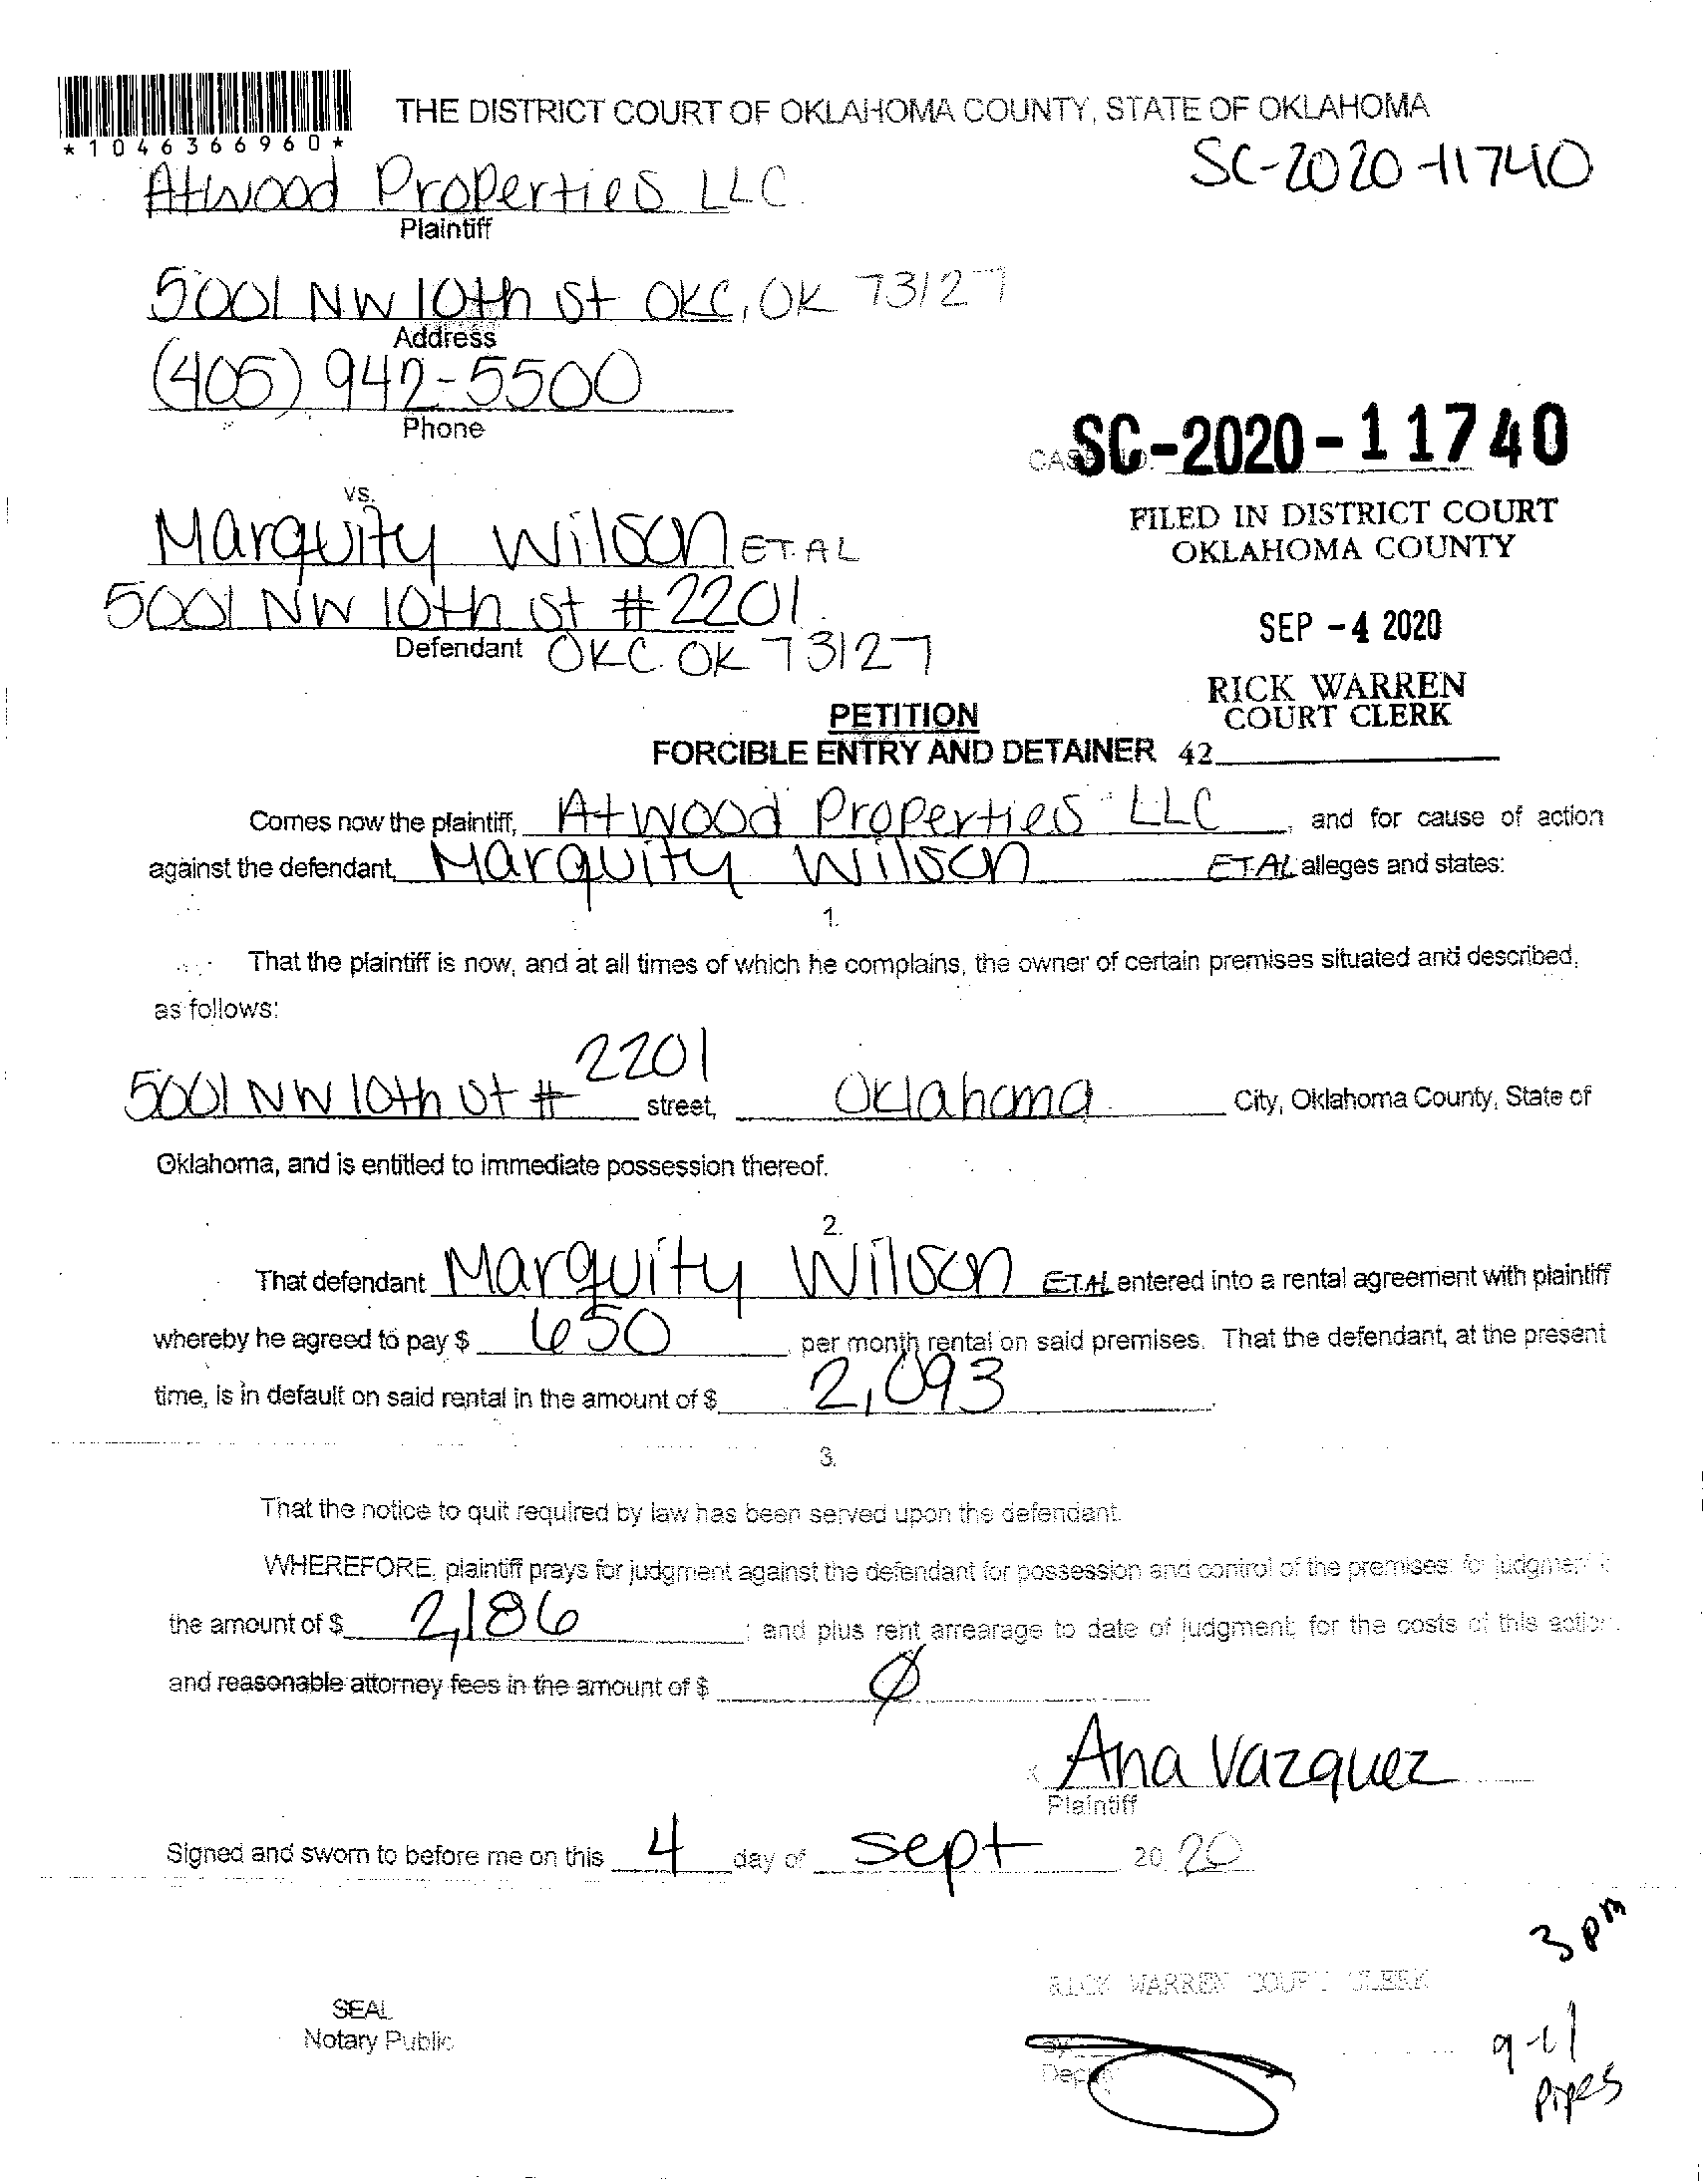 THE DISTRICT COURT OF OKLAHOMA COUNTY, STATE OF OKLAHOMA
*1046366960*
SC-2020-11740
Atwood Properties LLC.
Plaintiff
5001 NW 10th St OKC, OK 73127
Address
(405) 942-5500
Phone
SC-2020-11740
FILED IN DISTRICT COURT
OKLAHOMA COUNTY
SEP -4 2020
RICK WARREN
COURT CLERK
42
vs.
Marquity Wilson ET.AL
5001 NW 10th St #2201
Defendant OKC. OK 73127
PETITION
FORCIBLE ENTRY AND DETAINER
Comes now the plaintiff, Atwood Properties LLC, and for cause of action
against the defendant, Marquity Wilson ET.AL alleges and states:
1.
That the plaintiff is now, and at all times of which he complains, the owner of certain premises situated and described,
as follows:
5001 NW 10th St # 2201 street, Oklahoma City, Oklahoma County, State of
Oklahoma, and is entitled to immediate possession thereof.
2.
That defendant Marquity Wilson ET.AL entered into a rental agreement with plaintiff
whereby he agreed to pay $ 650 per month rental on said premises. That the defendant, at the present
time, is in default on said rental in the amount of $ 2,093
3.
That the notice to quit required by law has been served upon the defendant.
WHEREFORE, plaintiff prays for judgment against the defendant for possession and control of the premises: for judgment
the amount of $ 2,186; and plus rent arrearage to date of judgment; for the costs of this action
and reasonable attorney fees in the amount of $ Ø
Ana Vazquez
Plaintiff
Signed and sworn to before me on this 4 day of Sept 20 20
3 pm
RICK WARREN COURT CLERK
SEAL
Notary Public
By
Deputy
9-21
Pipes